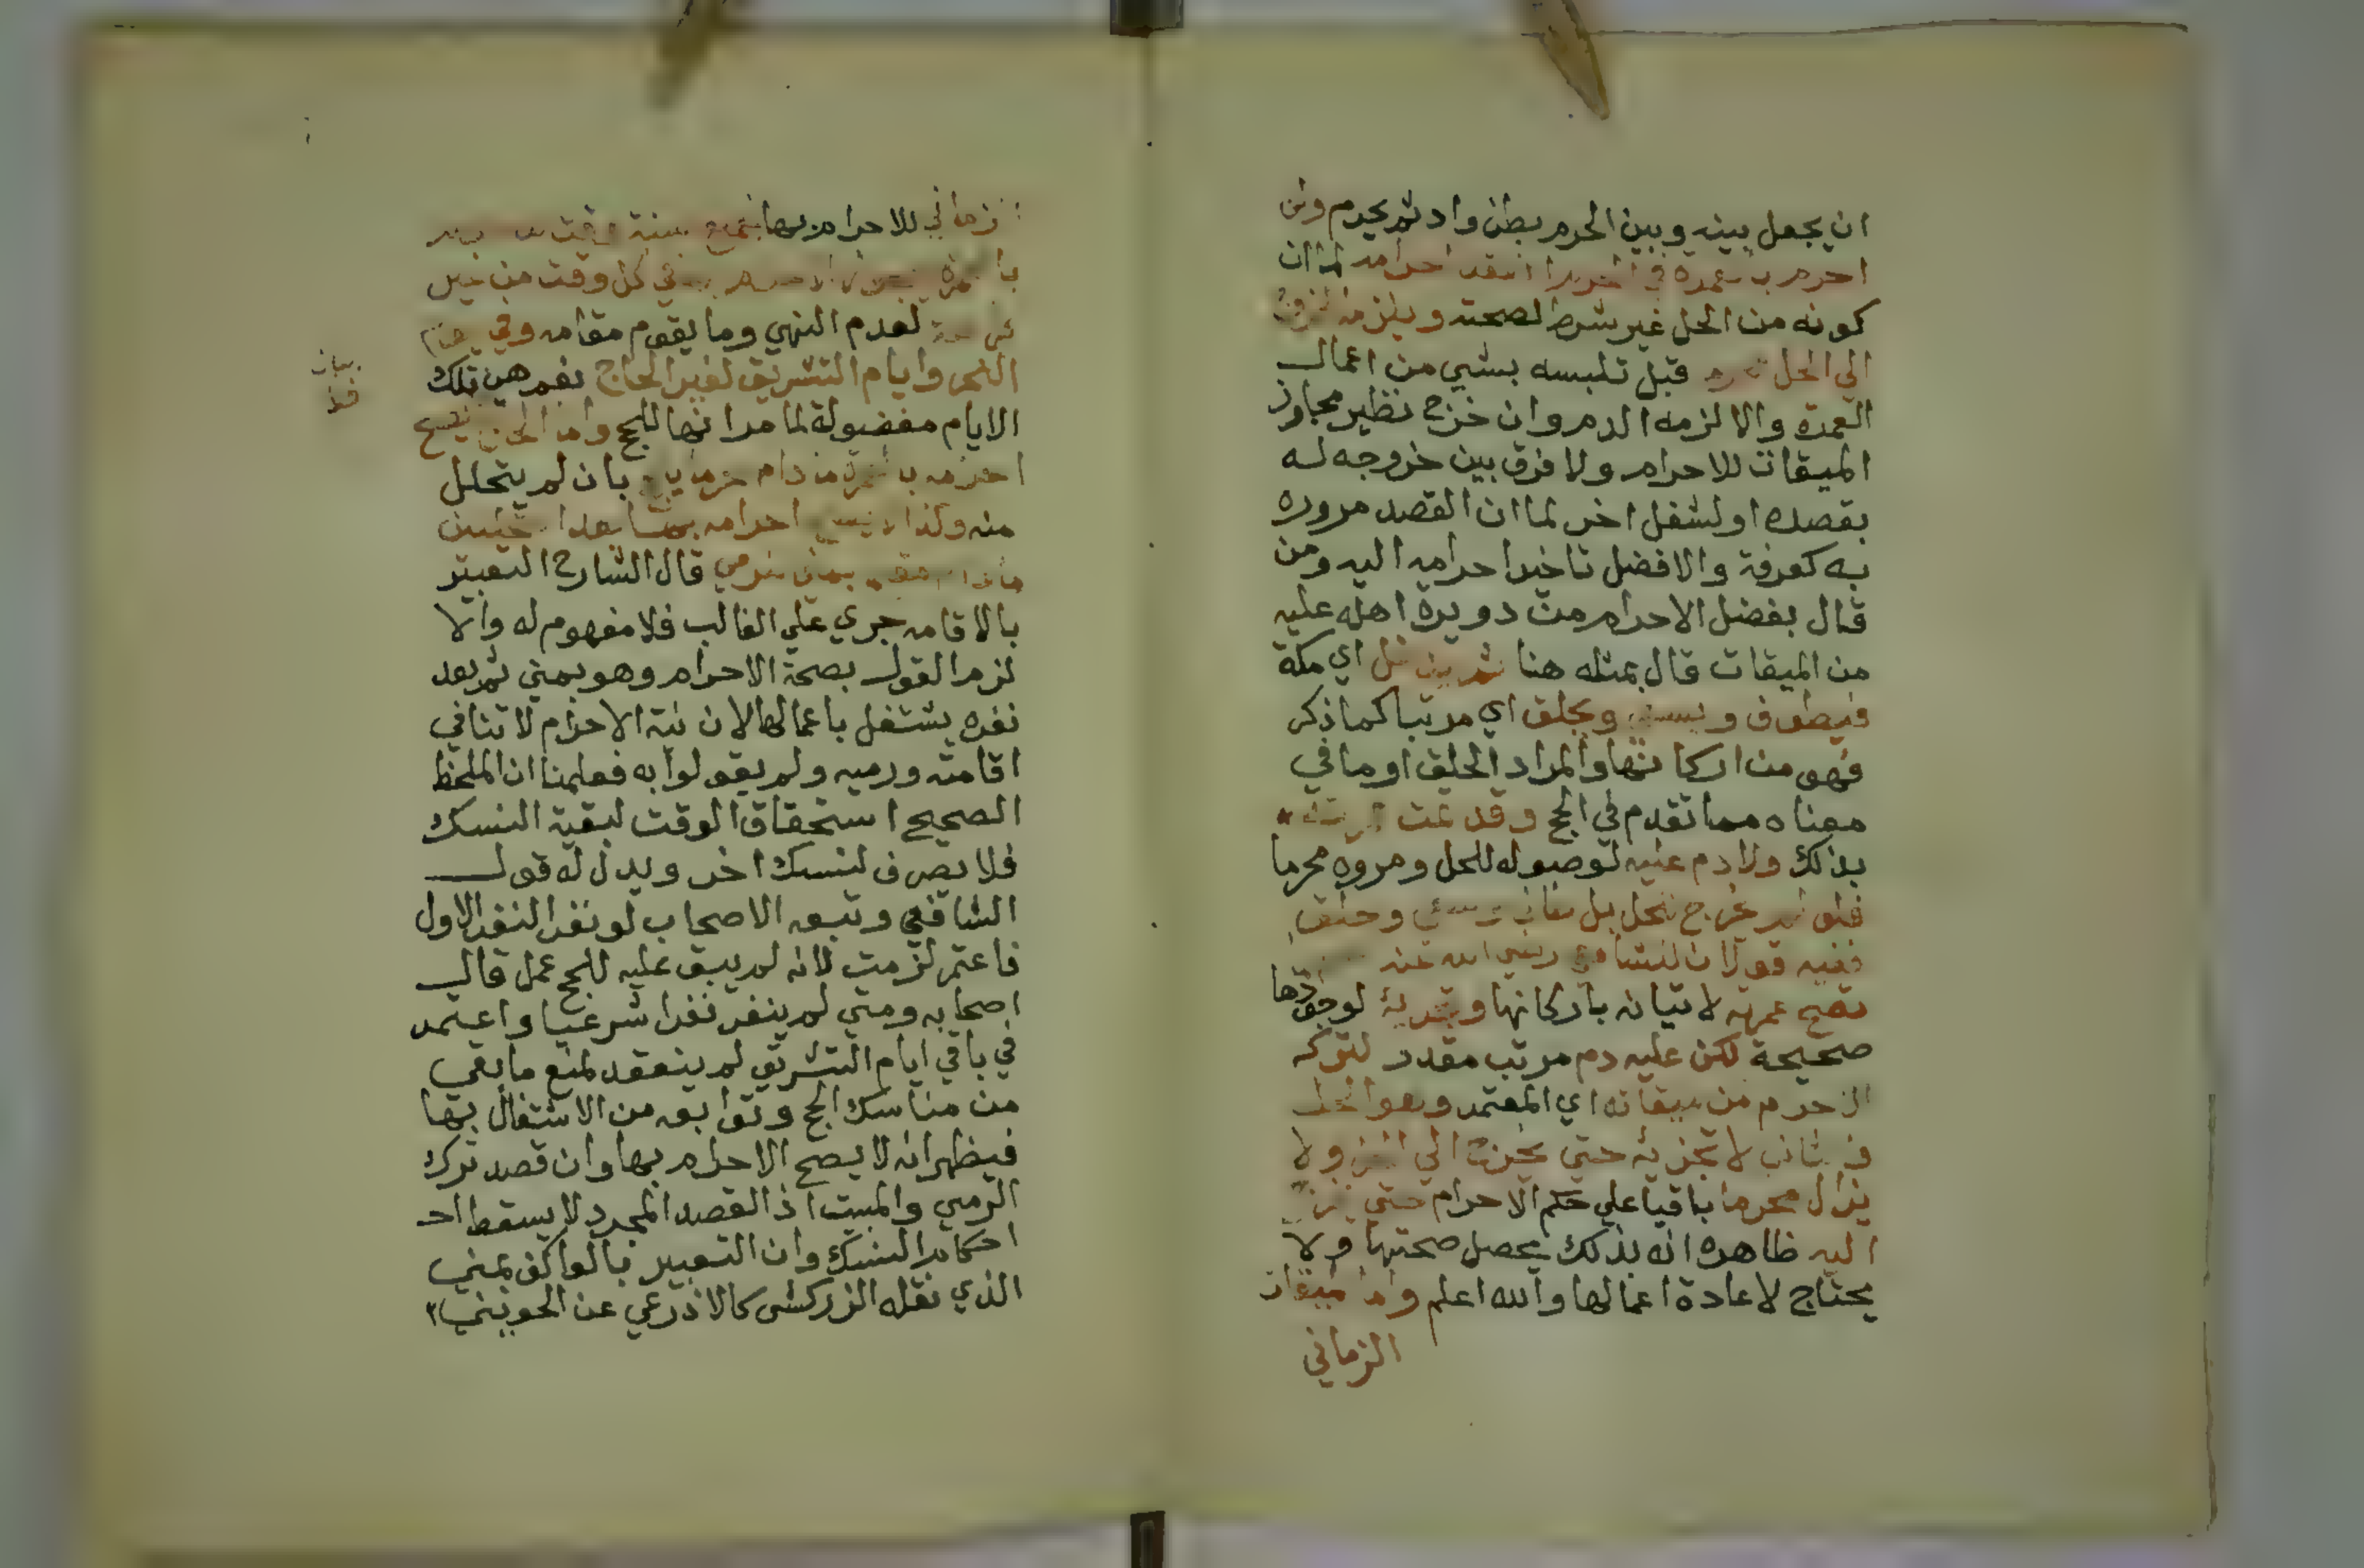 ان يجعل بينه وبين الحرم بطن واد ثم يحرم وان
احرم بالعمرة في الحرم انعقد احرامه لما ان
كونه من الحل غير شرط لصحته ويلزمه الخروج
الي الحل قبل تلبسه بشي من اعمال
العمرة والا لزمه الدم وان خرج نظير مجاوز
الميقات للاحرام ولا فرق بين خروجه له
بقصده او لشغل اخر لما ان القصد مروره
به كعرفة والافضل تاخير احرامه اليه ومن
قال بفضل الاحرام من دويرة اهله عليه
من الميقات قال بمثله هنا ثم يدخل اي مكة
فيطوف ويسعي ويحلق اي مرتبا كما ذكر
فهو من اركانها والمراد الحلق او ما في
معناه مما تقدم في الحج وقد تمت
بذلك ولا دم عليه لوصوله للحل ومروره محرما
فلو لم يخرج للحل بل طاف وسعي وحلق
ففيه قولان للشافعي رضي الله عنه
تصح عمرته لاتيانه باركانها وتجزيه لوجودها
صحيحة لكن عليه دم مرتب مقدر لتركه
الاحرام من ميقاته اي المعتمر وهو الحل
لا تجزيه حتي يخرج الي الحل ولا
يزال محرما باقيا علي حكم الاحرام حتي يخرج
اليه ظاهره انه بذلك يحصل صحتها ولا
يحتاج لاعادة اعمالها والله اعلم واما الميقات
الزماني
الزماني للاحرام بها فجميع السنة وقت
بالعمرة في كل وقت من غير
كراهة لعدم النهي وما يقوم مقامه وفي
النحر وايام التشريق لغير الحاج نعم هي تلك
الايام مفضولة لما مر انها للحج واما الحاج فلا يصح
احرامه بالعمرة ما دام محرما بان لم يتحلل
منه وكذا لا يصح احرامه بها بعد التحللين
ما دام مقيما بمني للرمي قال الشارح التعبير
بالاقامة جري علي الغالب فلا مفهوم له والا
لزم القول بصحة الاحرام وهو بمني ثم بعد
نفره يشتغل باعمالها لان نية الاحرام لا تنافي
اقامته ورميه ولم يقولوا به فعلمنا ان الملحظ
الصحيح استحقاق الوقت لبقية النسك
فلا يصرف لنسك اخر ويدل له قول
الشافعي وتبعه الاصحاب لو نفر النفر الاول
فاعتمر لزمت لانه لم يبق عليه للحج عمل قال
اصحابه ومتي لم ينفر نفرا شرعيا واعتمر
في باقي ايام التشريق لم ينعقد لمنع ما بقي
من مناسك الحج وتوابعه من الاشتغال بها
فيظهر انه لا يصح الاحرام بها وان قصد ترك
الرمي والمبيت اذ القصد المجرد لا يسقط احد
احكام النسك وان التعبير بالعاكف بمني
الذي نقله الزركشي كالاذرعي عن الجويني